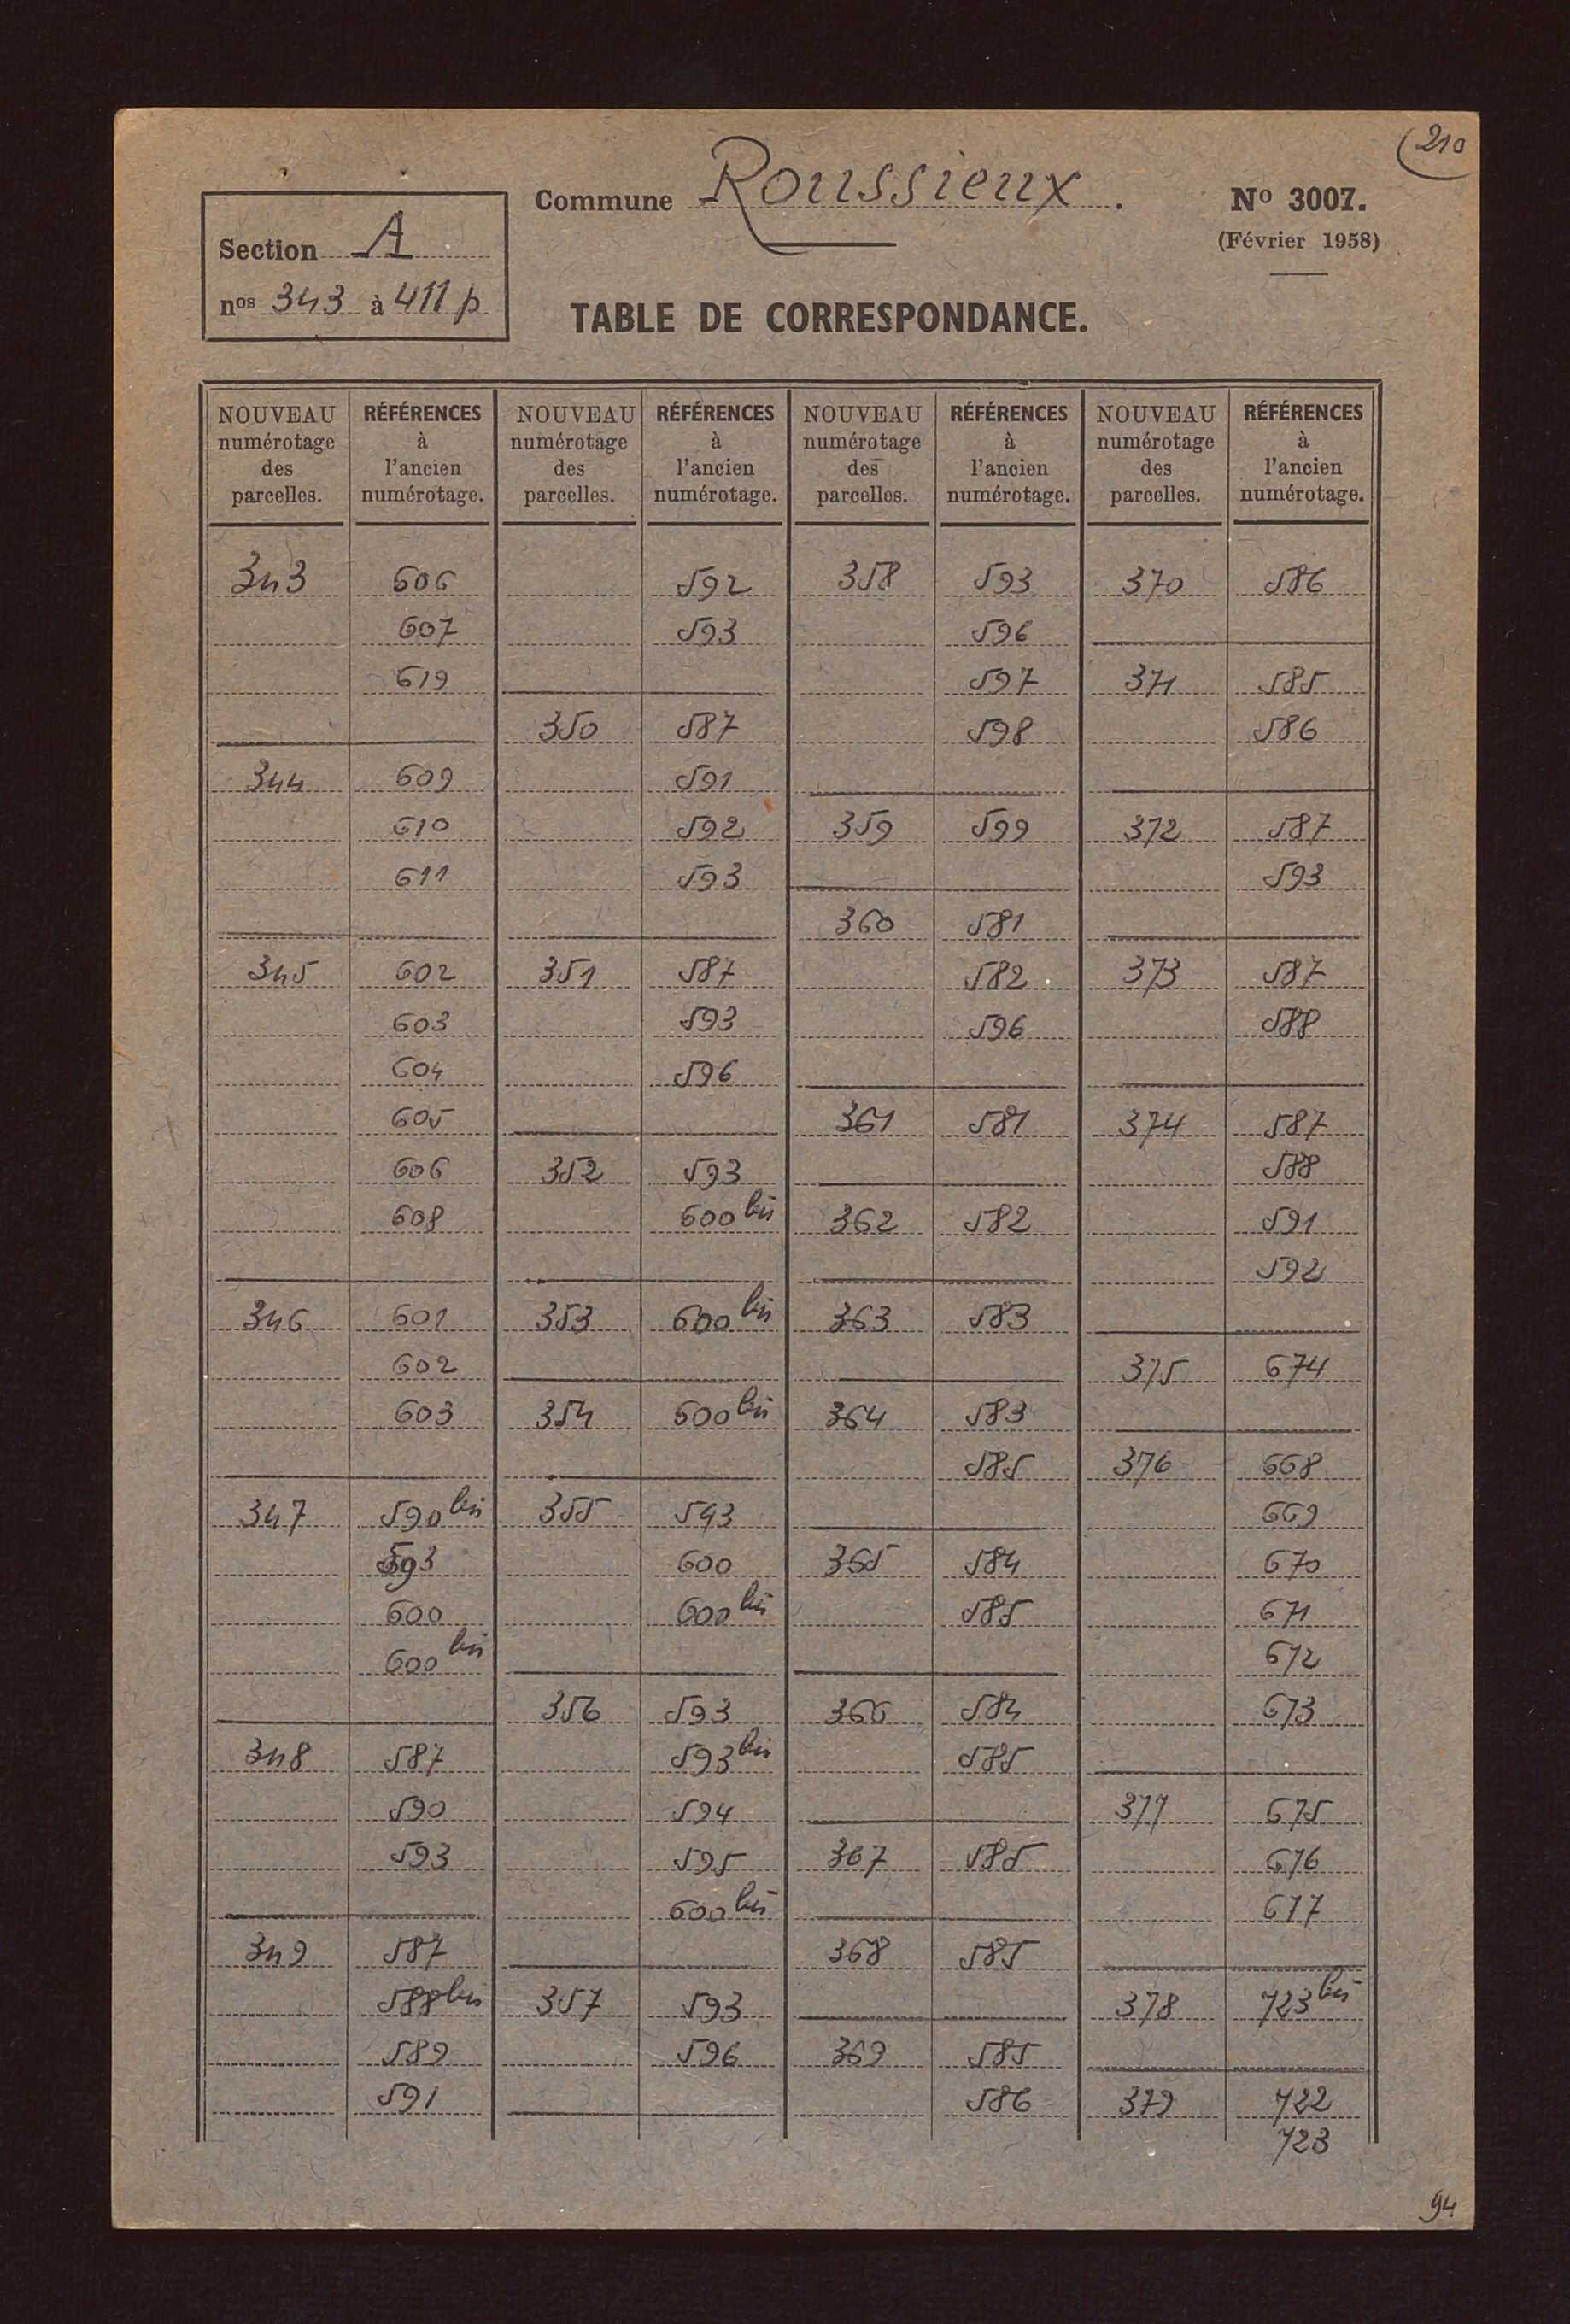 210
Commune Roussieux.
N° 3007.
(Février 1958)
Section A
nos 343 à 411 p
TABLE DE CORRESPONDANCE.
NOUVEAU numérotage des parcelles. RÉFÉRENCES à l'ancien numérotage. NOUVEAU numérotage des parcelles. RÉFÉRENCES à l'ancien numérotage. NOUVEAU numérotage des parcelles. RÉFÉRENCES à l'ancien numérotage. NOUVEAU numérotage des parcelles. RÉFÉRENCES à l'ancien numérotage.
343 606 592 358 593 370 586
607 593 596
619 597 371 585
350 587 598 586
344 609 591
610 592 359 599 372 587
611 593 593
360 581
345 602 351 587 582 373 587
603 593 596 588
604 596
605 361 581 374 587
606 352 593 588
608 600 bis 362 582 591
592
346 601 353 600 bis 363 583
602 375 674
603 354 600 bis 364 583
585 376 668
347 590 bis 355 593 669
593 600 365 584 670
600 600 bis 585 671
600 bis 672
356 593 366 584 673
348 587 593 bis 585
590 594 377 675
593 595 367 585 676
600 bis 677
349 587 368 585
588 bis 357 593 378 723 bis
589 596 369 585
591 586 379 722
723
94